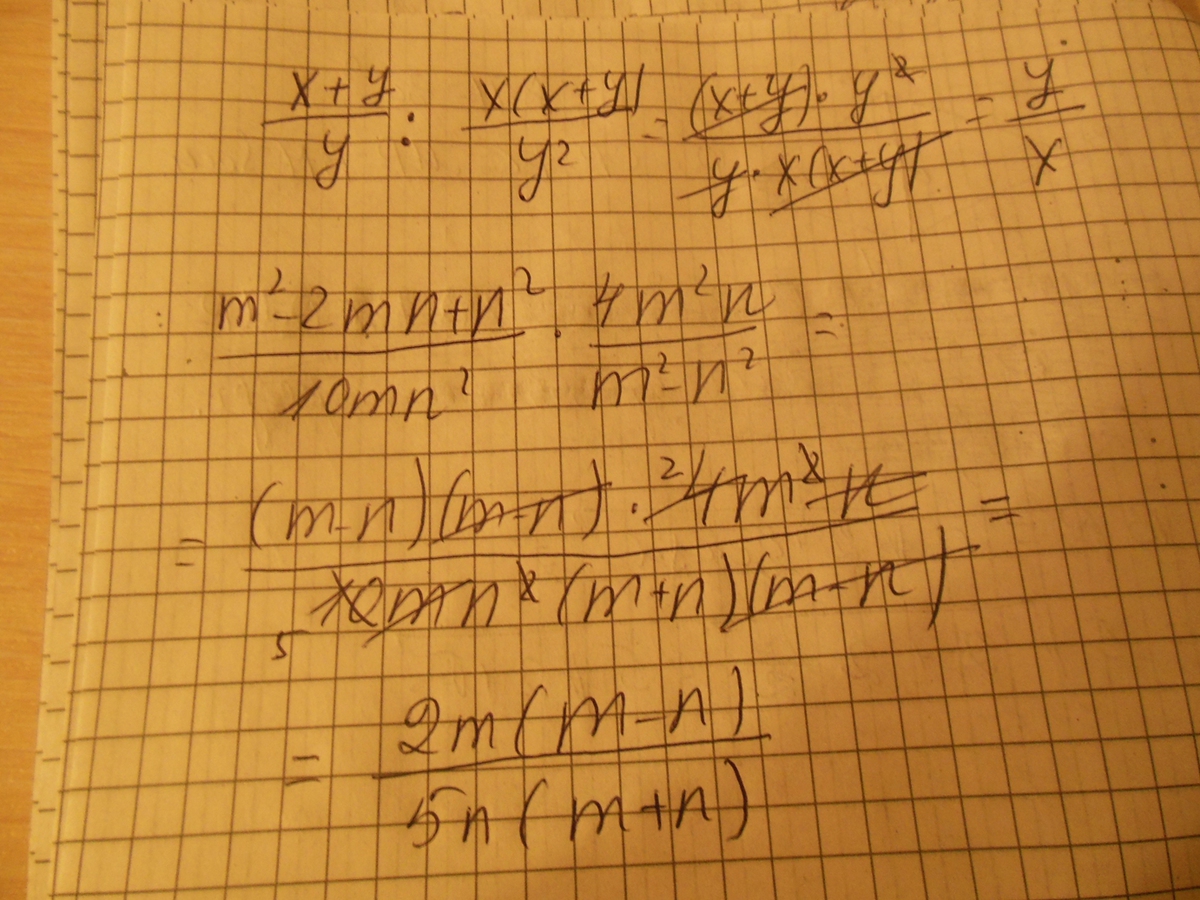 (x+y)/y : x(x+y)/y² = (x+y)·y²/(y·x(x+y)) = y/x
(m²-2mn+n²)/(10mn²) · 4m²n/(m²-n²) =
= (m-n)(m-n)·²4m²n/(₅10mn²(m+n)(m-n)) =
= 2m(m-n)/(5n(m+n))